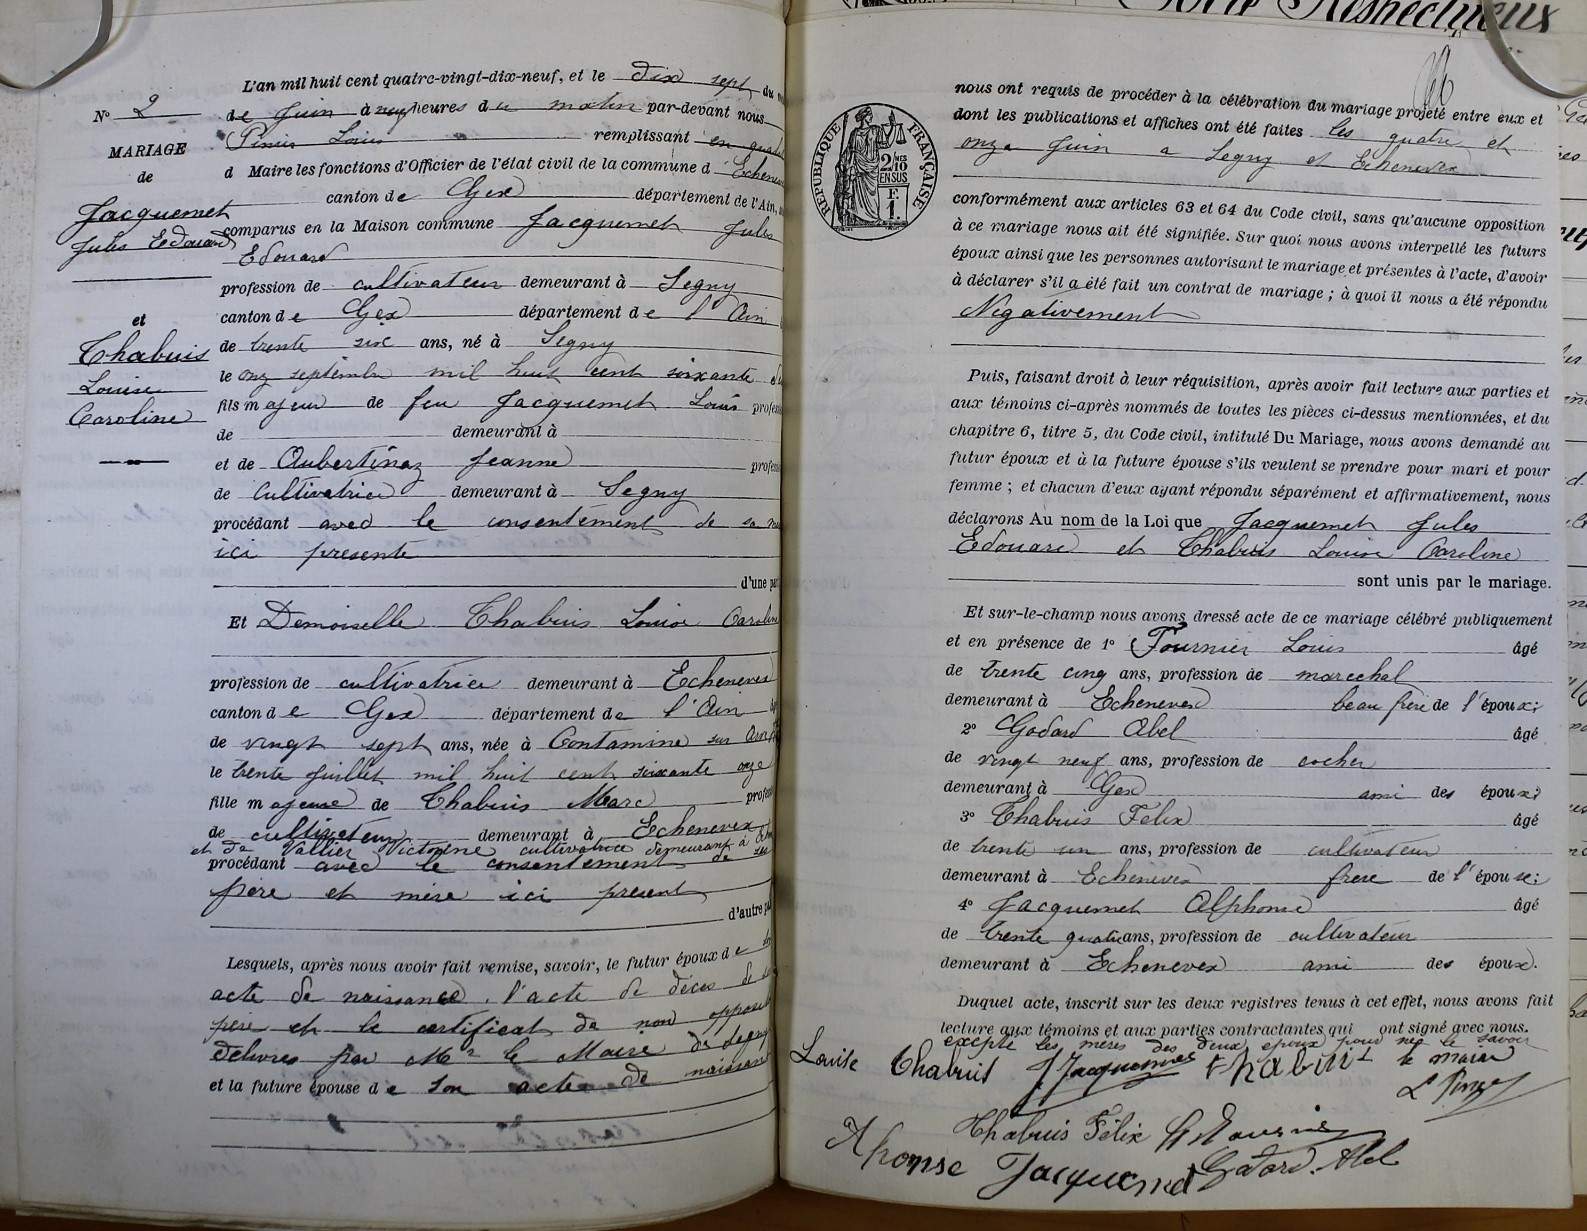 L'an mil huit cent quatre-vingt-dix-neuf, et le dix sept du
N° 2
de Juin à neuf heures du matin par-devant nous
Louis remplissant en
MARIAGE
de
d Maire les fonctions d'Officier de l'état civil de la commune d'Echenevex
canton de Gex département de l'Ain,
Jacquemet
Jules Edouard
comparus en la Maison commune Jacquemet Jules
Edouard
profession de cultivateur demeurant à Segny
canton de Gex département de l'Ain
et
Chabuis
Louise
Caroline
de trente six ans, né à Segny
le onze septembre mil huit cent soixante
fils majeur de feu Jacquemet Louis profess
de demeurant à
et de Aubertinaz Jeanne profess
de cultivatrice demeurant à Segny
procédant avec le consentement de sa
ici presente
d'une par
Et Demoiselle Chabuis Louise Caroline
profession de cultivatrice demeurant à Echenevex
canton de Gex département de l'Ain
de vingt sept ans, née à Contamine sur Arve
le trente Juillet mil huit cent soixante onze
fille majeure de Chabuis Marc profess
de cultivateur demeurant à Echenevex
et de Vallier Victorine cultivatrice demeurant à
procédant avec le consentement de ses
père et mère ici present
d'autre pa
Lesquels, après nous avoir fait remise, savoir, le futur époux de
acte de naissance, l'acte de décès de
père et le certificat de non
délivrés par Mr le Maire de Segny
et la future épouse de son acte de naissan
Respectueux
nous ont requis de procéder à la célébration du mariage projeté entre eux et
dont les publications et affiches ont été faites les quatre et
onze Juin a Segny et Echenevex
RÉPUBLIQUE FRANÇAISE
2/10 MES
EN SUS
F.
1.
conformément aux articles 63 et 64 du Code civil, sans qu'aucune opposition
à ce mariage nous ait été signifiée. Sur quoi nous avons interpellé les futurs
époux ainsi que les personnes autorisant le mariage et présentes à l'acte, d'avoir
à déclarer s'il a été fait un contrat de mariage ; à quoi il nous a été répondu
Négativement
Puis, faisant droit à leur réquisition, après avoir fait lecture aux parties et
aux témoins ci-après nommés de toutes les pièces ci-dessus mentionnées, et du
chapitre 6, titre 5, du Code civil, intitulé Du Mariage, nous avons demandé au
futur époux et à la future épouse s'ils veulent se prendre pour mari et pour
femme ; et chacun d'eux ayant répondu séparément et affirmativement, nous
déclarons Au nom de la Loi que Jacquemet Jules
Edouard et Chabuis Louise Caroline
sont unis par le mariage.
Et sur-le-champ nous avons dressé acte de ce mariage célébré publiquement
et en présence de 1° Fournier Louis âgé
de trente cinq ans, profession de marechal
demeurant à Echenevex beau frère de l'époux;
2° Godard Abel âgé
de vingt neuf ans, profession de cocher
demeurant à Gex ami des époux;
3° Chabuis Félix âgé
de trente un ans, profession de cultivateur
demeurant à Echenevex frere de l'épouse;
4° Jacquemet Alphonse âgé
de trente quatre ans, profession de cultivateur
demeurant à Echenevex ami des époux.
Duquel acte, inscrit sur les deux registres tenus à cet effet, nous avons fait
lecture aux témoins et aux parties contractantes qui ont signé avec nous.
excepté les mères des deux époux pour ne le savoir
Louise Chabuis J Jacquemet Chabuis le maire
Chabuis Félix
Godard Abel
Alphonse Jacquemet